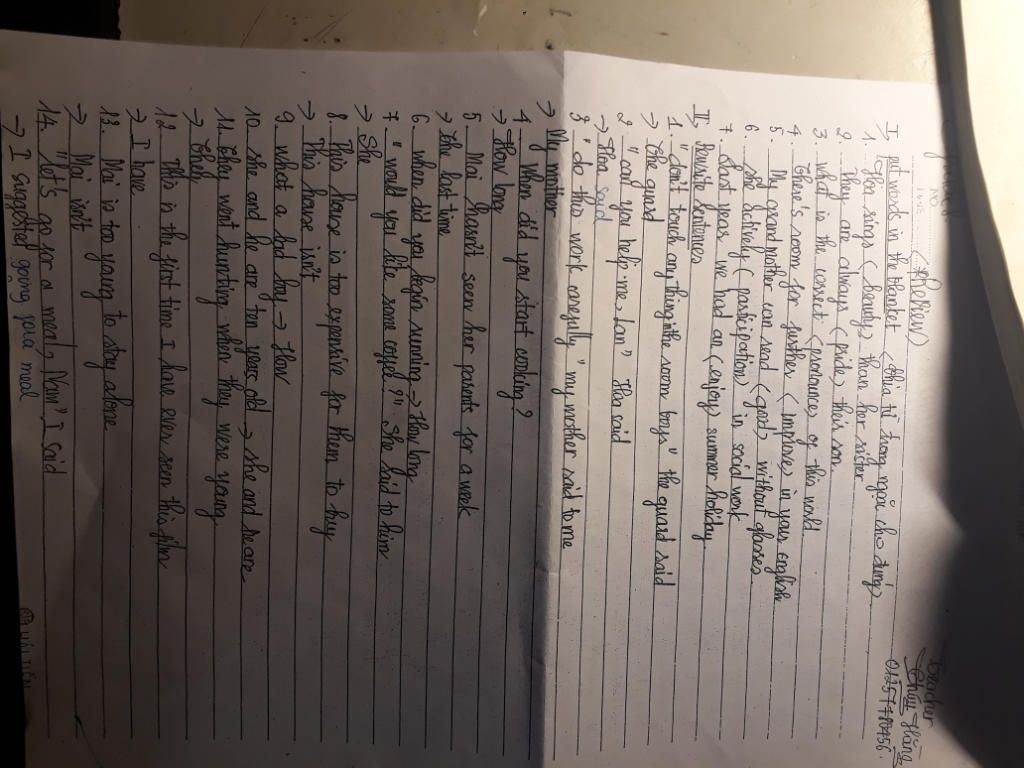 (Review)
Teacher
Thuy Hằng
I, put words in the blanket (chia từ trong ngoặc cho đúng)
1. Hee sings (beauty) than her sister
2. They are always (pride) this son.
3. What is the correct (pordonance) of this world.
4. There's room for further (improve) in your english
5. My grandmother can read (good) without glasses.
6. she actively (participation) in social work
7. Last years we had an (enjoy) summer holiday
II, Rewrite sentences
1. "don't touch any thing in the room boys" the guard said
→ the guard
2 "can you help me, Lan" Hoa said
→ Hoa said
3 "do this work carefully" my mother said to me
→ My mother
4 When did you start cooking?
→ How long
5 Mai hasn't seen her parents for a week
→ the last time
6 when did you begin running → How long
7 "would you like some coffee?" She said to him
→ She
8 This house is too expensive for them to buy
→ This house isn't
9 what a sad boy → How
10 she and he are ten years old → she and he are
11 they went hunting when they were young
→ they
12 This is the first time I have ever seen this film
→ I have
13. Mai is too young to stay alone
→ Mai isn't
14. "let's go for a meal, Nam" I said
→ I suggested going for a meal